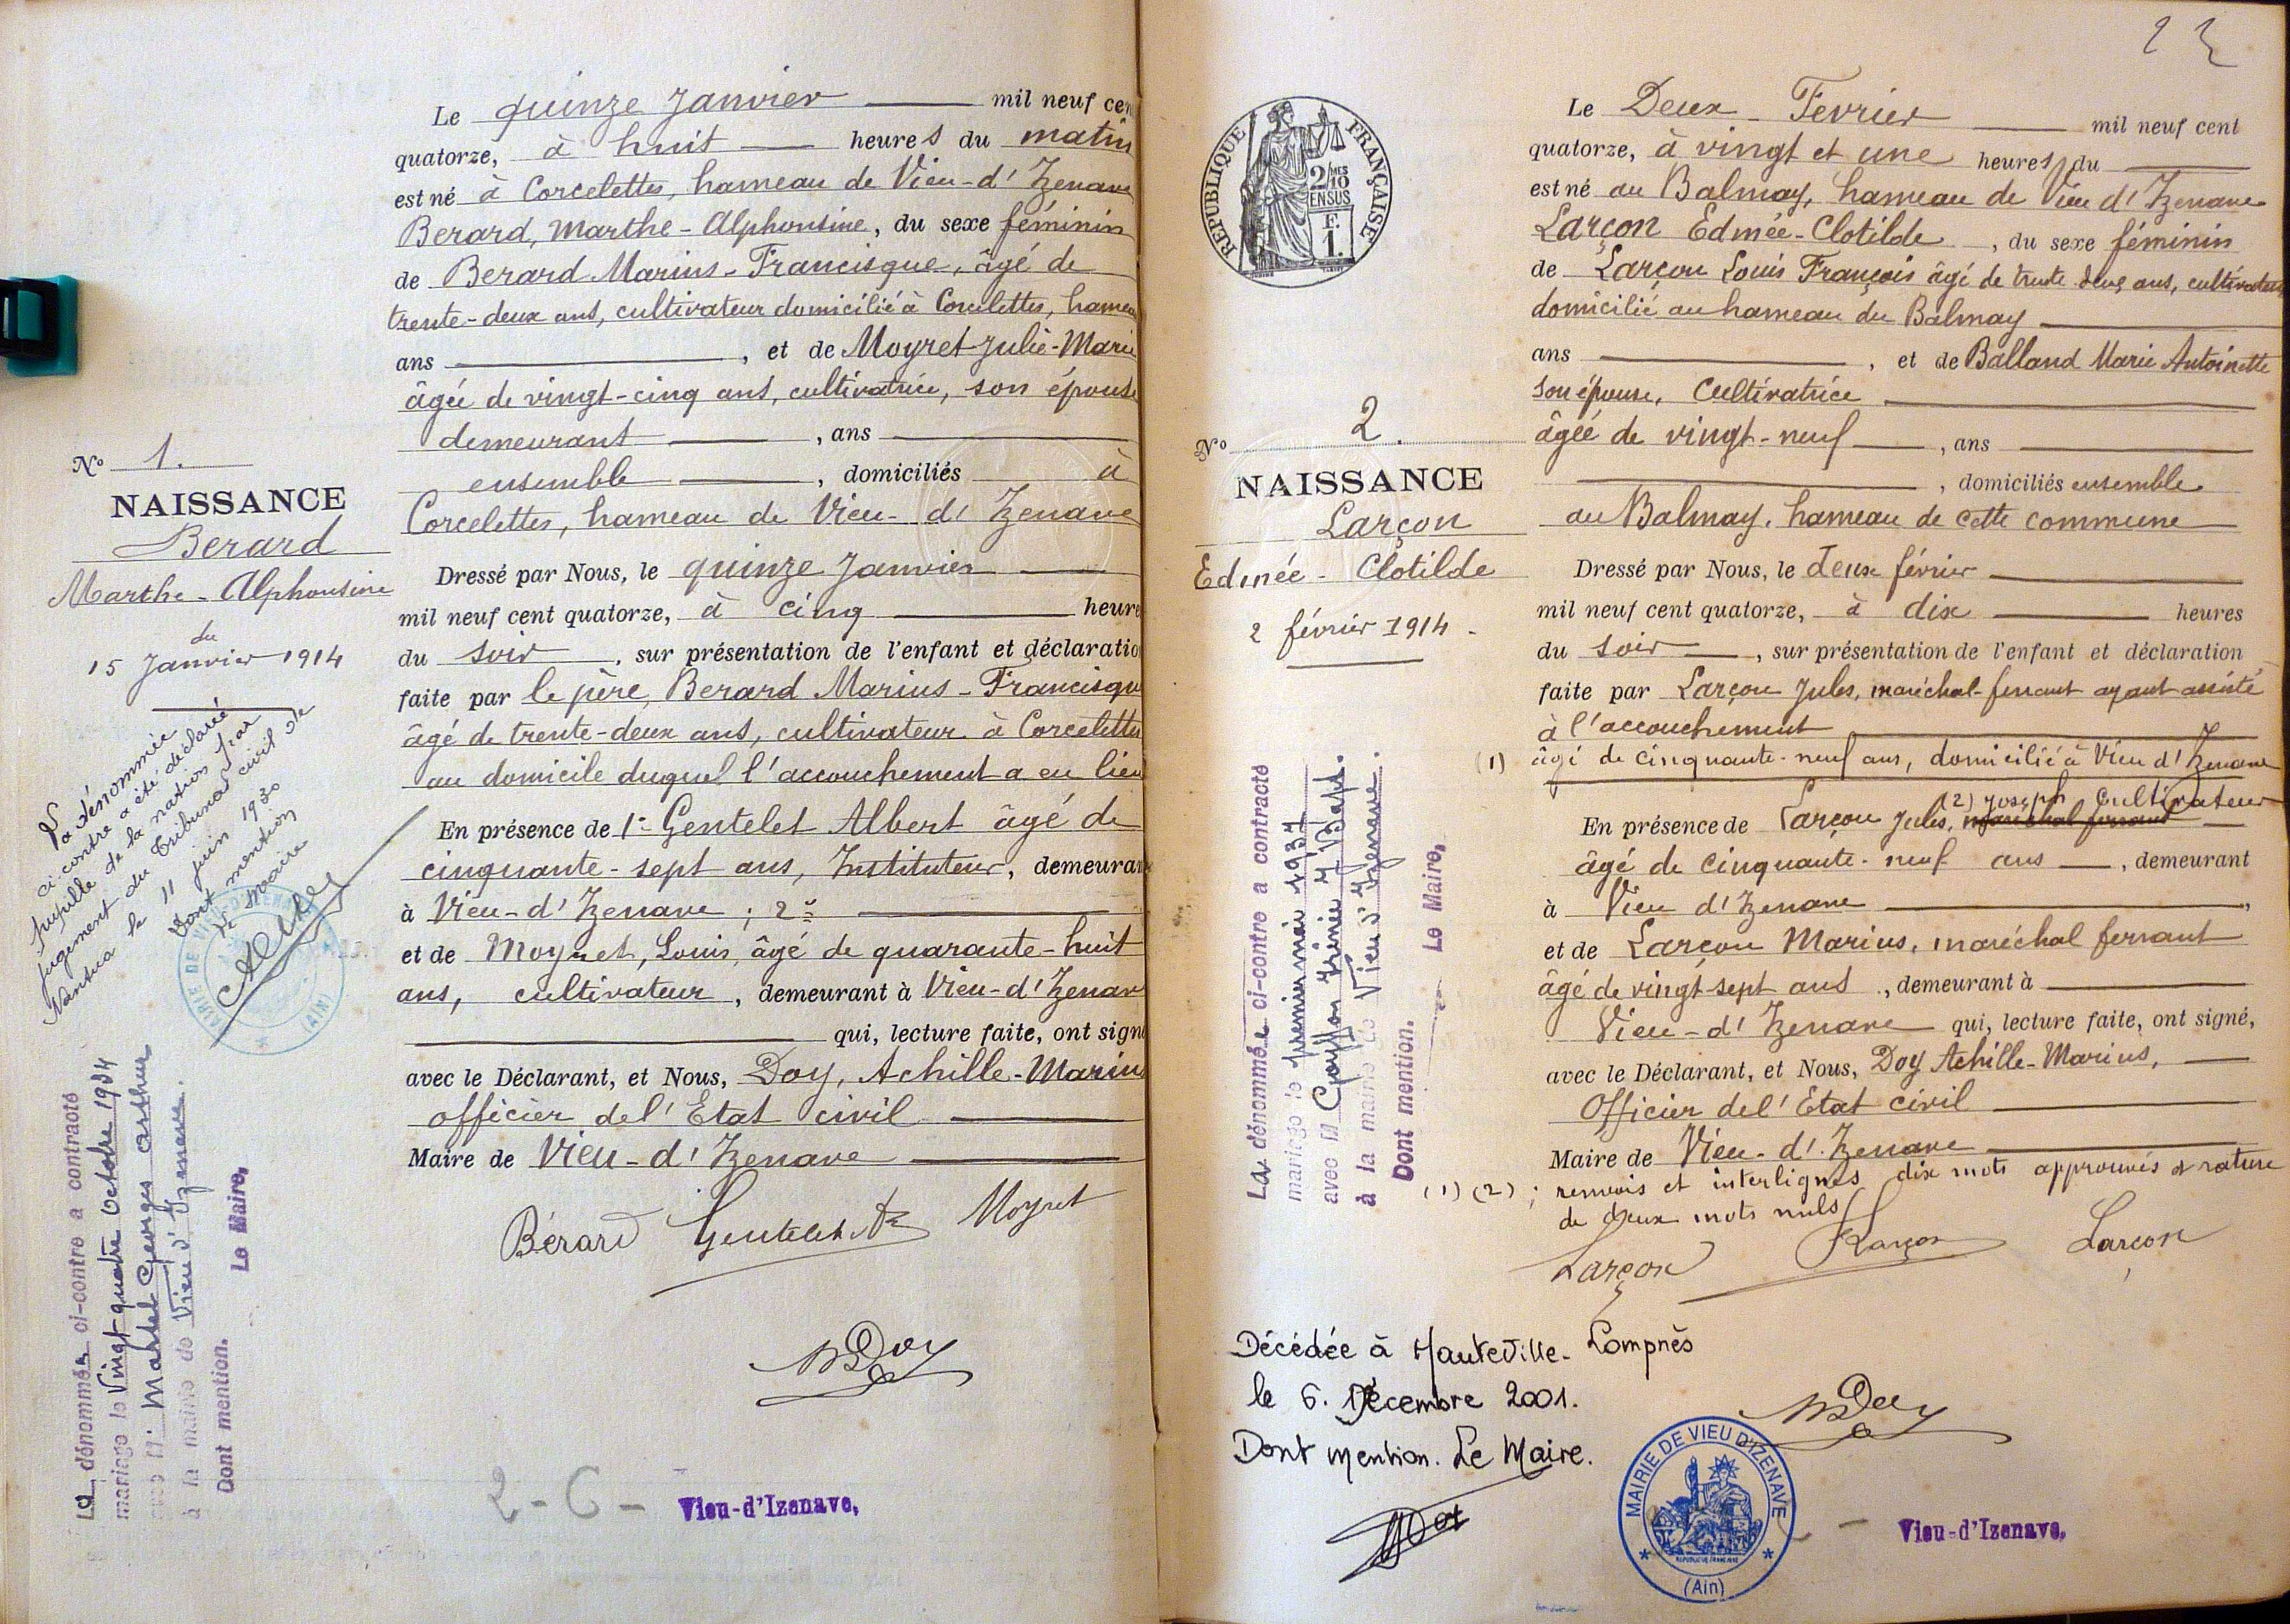 Le quinze Janvier mil neuf cen
quatorze, à huit heures du matin
est né à Corcelettes, hameau de Vieu-d'Izenave
Berard, Marthe-Alphonsine, du sexe féminin
de Berard Marius-Francisque, âgé de
trente-deux ans, cultivateur domicilié à Corcelettes, hameau
ans , et de Moyret Julie-Marie
âgée de vingt-cinq ans, cultivatrice, son épouse
demeurant , ans
ensemble , domiciliés à
Corcelettes, hameau de Vieu-d'Izenave
Dressé par Nous, le quinze Janvier
mil neuf cent quatorze, à cinq heure
du soir , sur présentation de l'enfant et déclaratio
faite par le père, Berard Marius-Francisqu
âgé de trente-deux ans, cultivateur à Corcelettes
au domicile duquel l'accouchement a eu lieu
En présence de 1º Gentelet Albert âgé de
cinquante-sept ans, Instituteur, demeuran
à Vieu-d'Izenave ; 2º
et de Moyret, Louis, âgé de quarante-huit
ans, cultivateur, demeurant à Vieu-d'Izenav
qui, lecture faite, ont sign
avec le Déclarant, et Nous, Doy, Achille-Marius
officier de l'Etat civil
Maire de Vieu-d'Izenave
Bérard Gentelet A Moyret
Doy
Nº 1.
NAISSANCE
Berard
Marthe-Alphonsine
du
15 Janvier 1914
La dénommée
ci contre a été déclarée
pupille de la nation par
jugement du Tribunal civil de
Nantua le 11 juin 1930
Dont mention
Le Maire
MAIRIE DE VIEU-D'IZENAVE
(AIN)
La dénommée ci-contre a contracté
mariage le Vingt-quatre Octobre 1934
avec M. Martel Georges Arthur
à la mairie de Vieu d'Izenave.
Dont mention. Le Maire,
2-6-
Vieu-d'Izenave,
22
REPUBLIQUE FRANÇAISE
2/10 MES
EN SUS
F.
1.
Nº 2.
NAISSANCE
Larçon
Edmée-Clotilde
2 février 1914
Le Deux Fevrier mil neuf cent
quatorze, à vingt et une heures, du
est né au Balmay, hameau de Vieu d'Izenave
Larçon Edmée-Clotilde , du sexe féminin
de Larçon Louis François âgé de trente deux ans, cultivateur
domicilié au hameau du Balmay
ans , et de Balland Marie Antoinette
son épouse, Cultivatrice
âgée de vingt-neuf , ans
, domiciliés ensemble
au Balmay, hameau de cette commune
Dressé par Nous, le deux février
mil neuf cent quatorze, à dix heures
du soir , sur présentation de l'enfant et déclaration
faite par Larçon Jules, maréchal-ferrant ayant assisté
à l'accouchement
(1) âgé de cinquante-neuf ans, domicilié à Vieu d'Izenave
(2) Joseph, Cultivateur
En présence de Larçon Jules, maréchal ferrant
âgé de cinquante-neuf ans , demeurant
à Vieu d'Izenave ,
et de Larçon Marius, maréchal ferrant
âgé de vingt-sept ans , demeurant à
Vieu-d'Izenave qui, lecture faite, ont signé,
avec le Déclarant, et Nous, Doy Achille-Marius,
Officier de l'Etat civil
Maire de Vieu-d'Izenave
(1) (2) ; renvois et interlignes dix mots approuvés et rature
de deux mots nuls
Larçon Larçon Larçon
Doy
La dénommée ci-contre a contracté
mariage le premier mai 1937
avec M Goyffon Irénée J. Bapt.
à la mairie de Vieu d'Izenave.
Dont mention. Le Maire,
Décédée à Hauteville-Lompnès
le 6. Décembre 2001.
Dont mention. Le Maire.
MAIRIE DE VIEU D'IZENAVE
REPUBLIQUE FRANÇAISE
(Ain)
Vieu-d'Izenave,